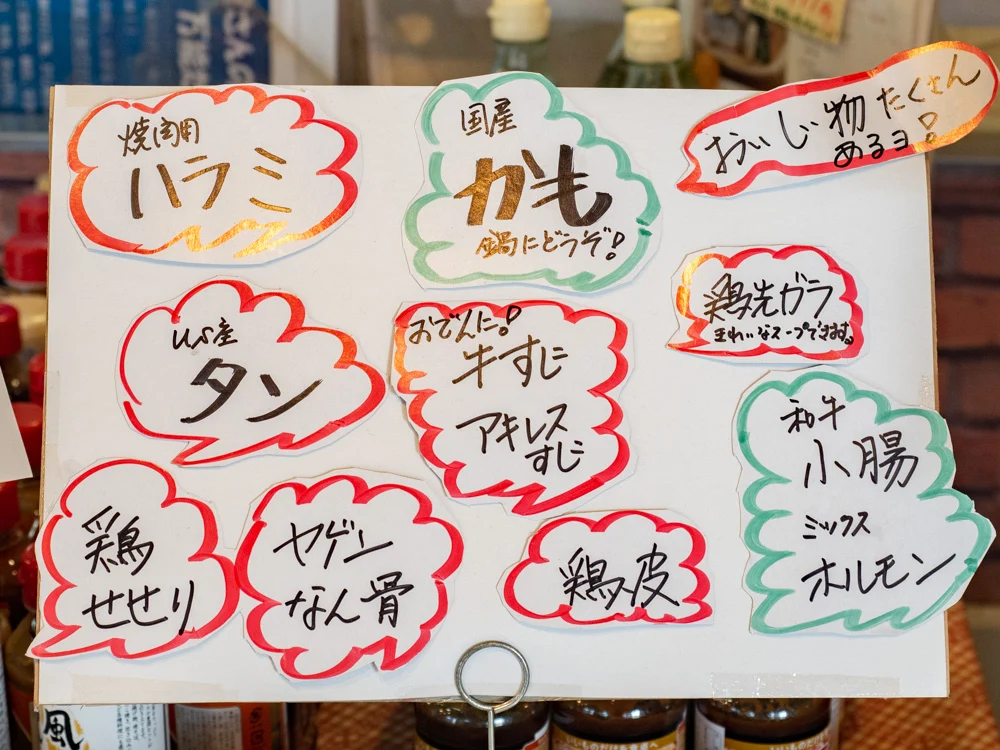 焼肉用
ハラミ
国産
かも
鍋にどうぞ!
おいしい物たくさん
あるヨ!
US産
タン
おでんに!
牛すじ
アキレス
すじ
鶏先ガラ
きれいなスープできます。
和牛
小腸
ミックス
ホルモン
鶏
せせり
ヤゲン
なん骨
鶏皮
風